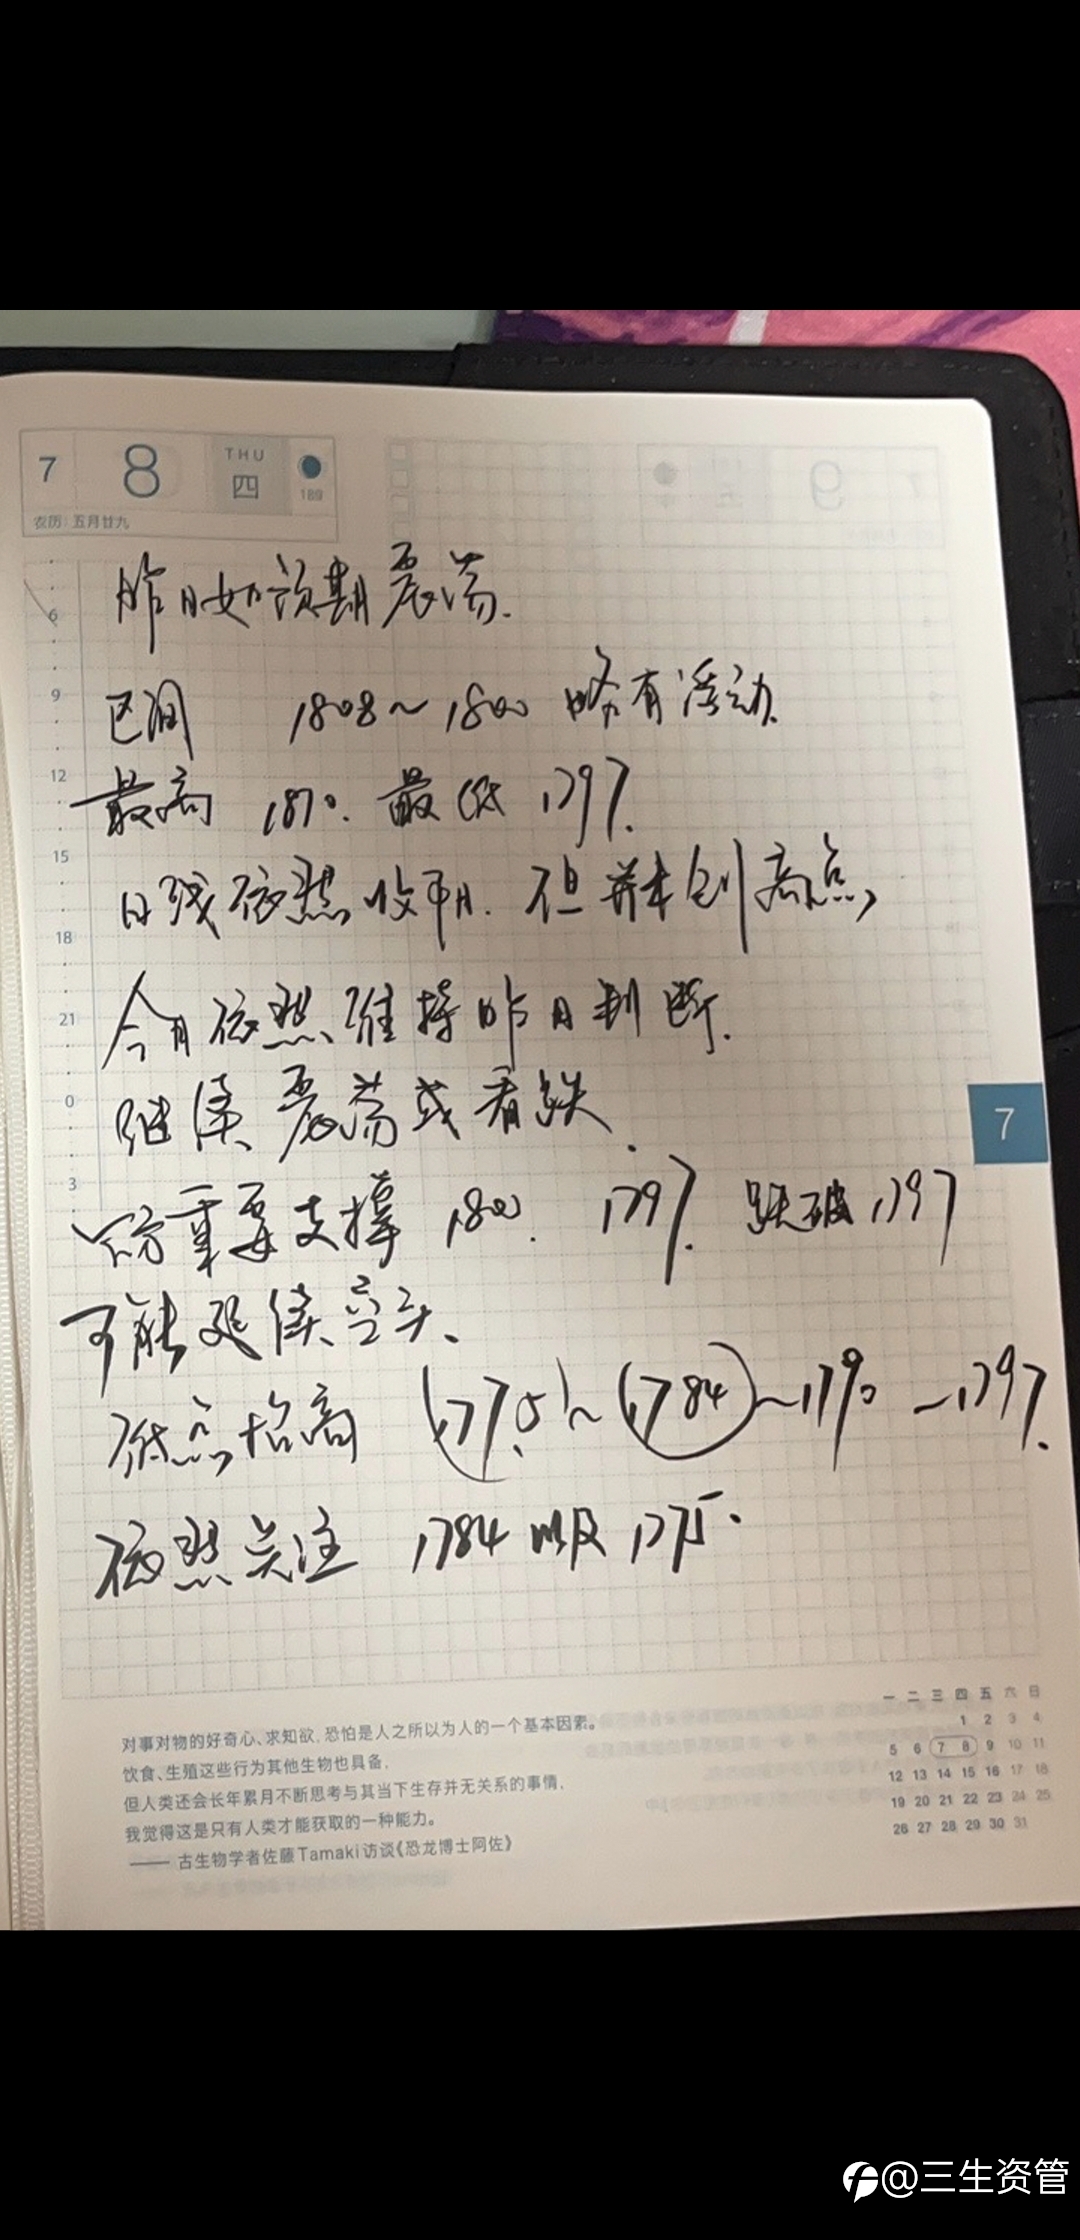 7 8 THU 四 189
农历:五月廿九
昨日如预期震荡.
6
区间 1808～1800 略有浮动.
9
最高 1810. 最低 1797.
12
日线依然收阳. 但并未创高点,
15
18
今日依然维持昨日判断.
21
继续震荡或看跌.
0
下方重要支撑 1800. 1797. 跌破1797
3
可能延续空头、
低点抬高 (1775)～(1784)～1790－1797.
依然关注 1784以及1775.
7
对事对物的好奇心、求知欲,恐怕是人之所以为人的一个基本因素。
饮食、生殖这些行为其他生物也具备,
但人类还会长年累月不断思考与其当下生存并无关系的事情,
我觉得这是只有人类才能获取的一种能力。
—— 古生物学者佐藤Tamaki访谈《恐龙博士阿佐》
一 二 三 四 五 六 日
1 2 3 4
5 6 7 8 9 10 11
12 13 14 15 16 17 18
19 20 21 22 23 24 25
26 27 28 29 30 31
@三生资管